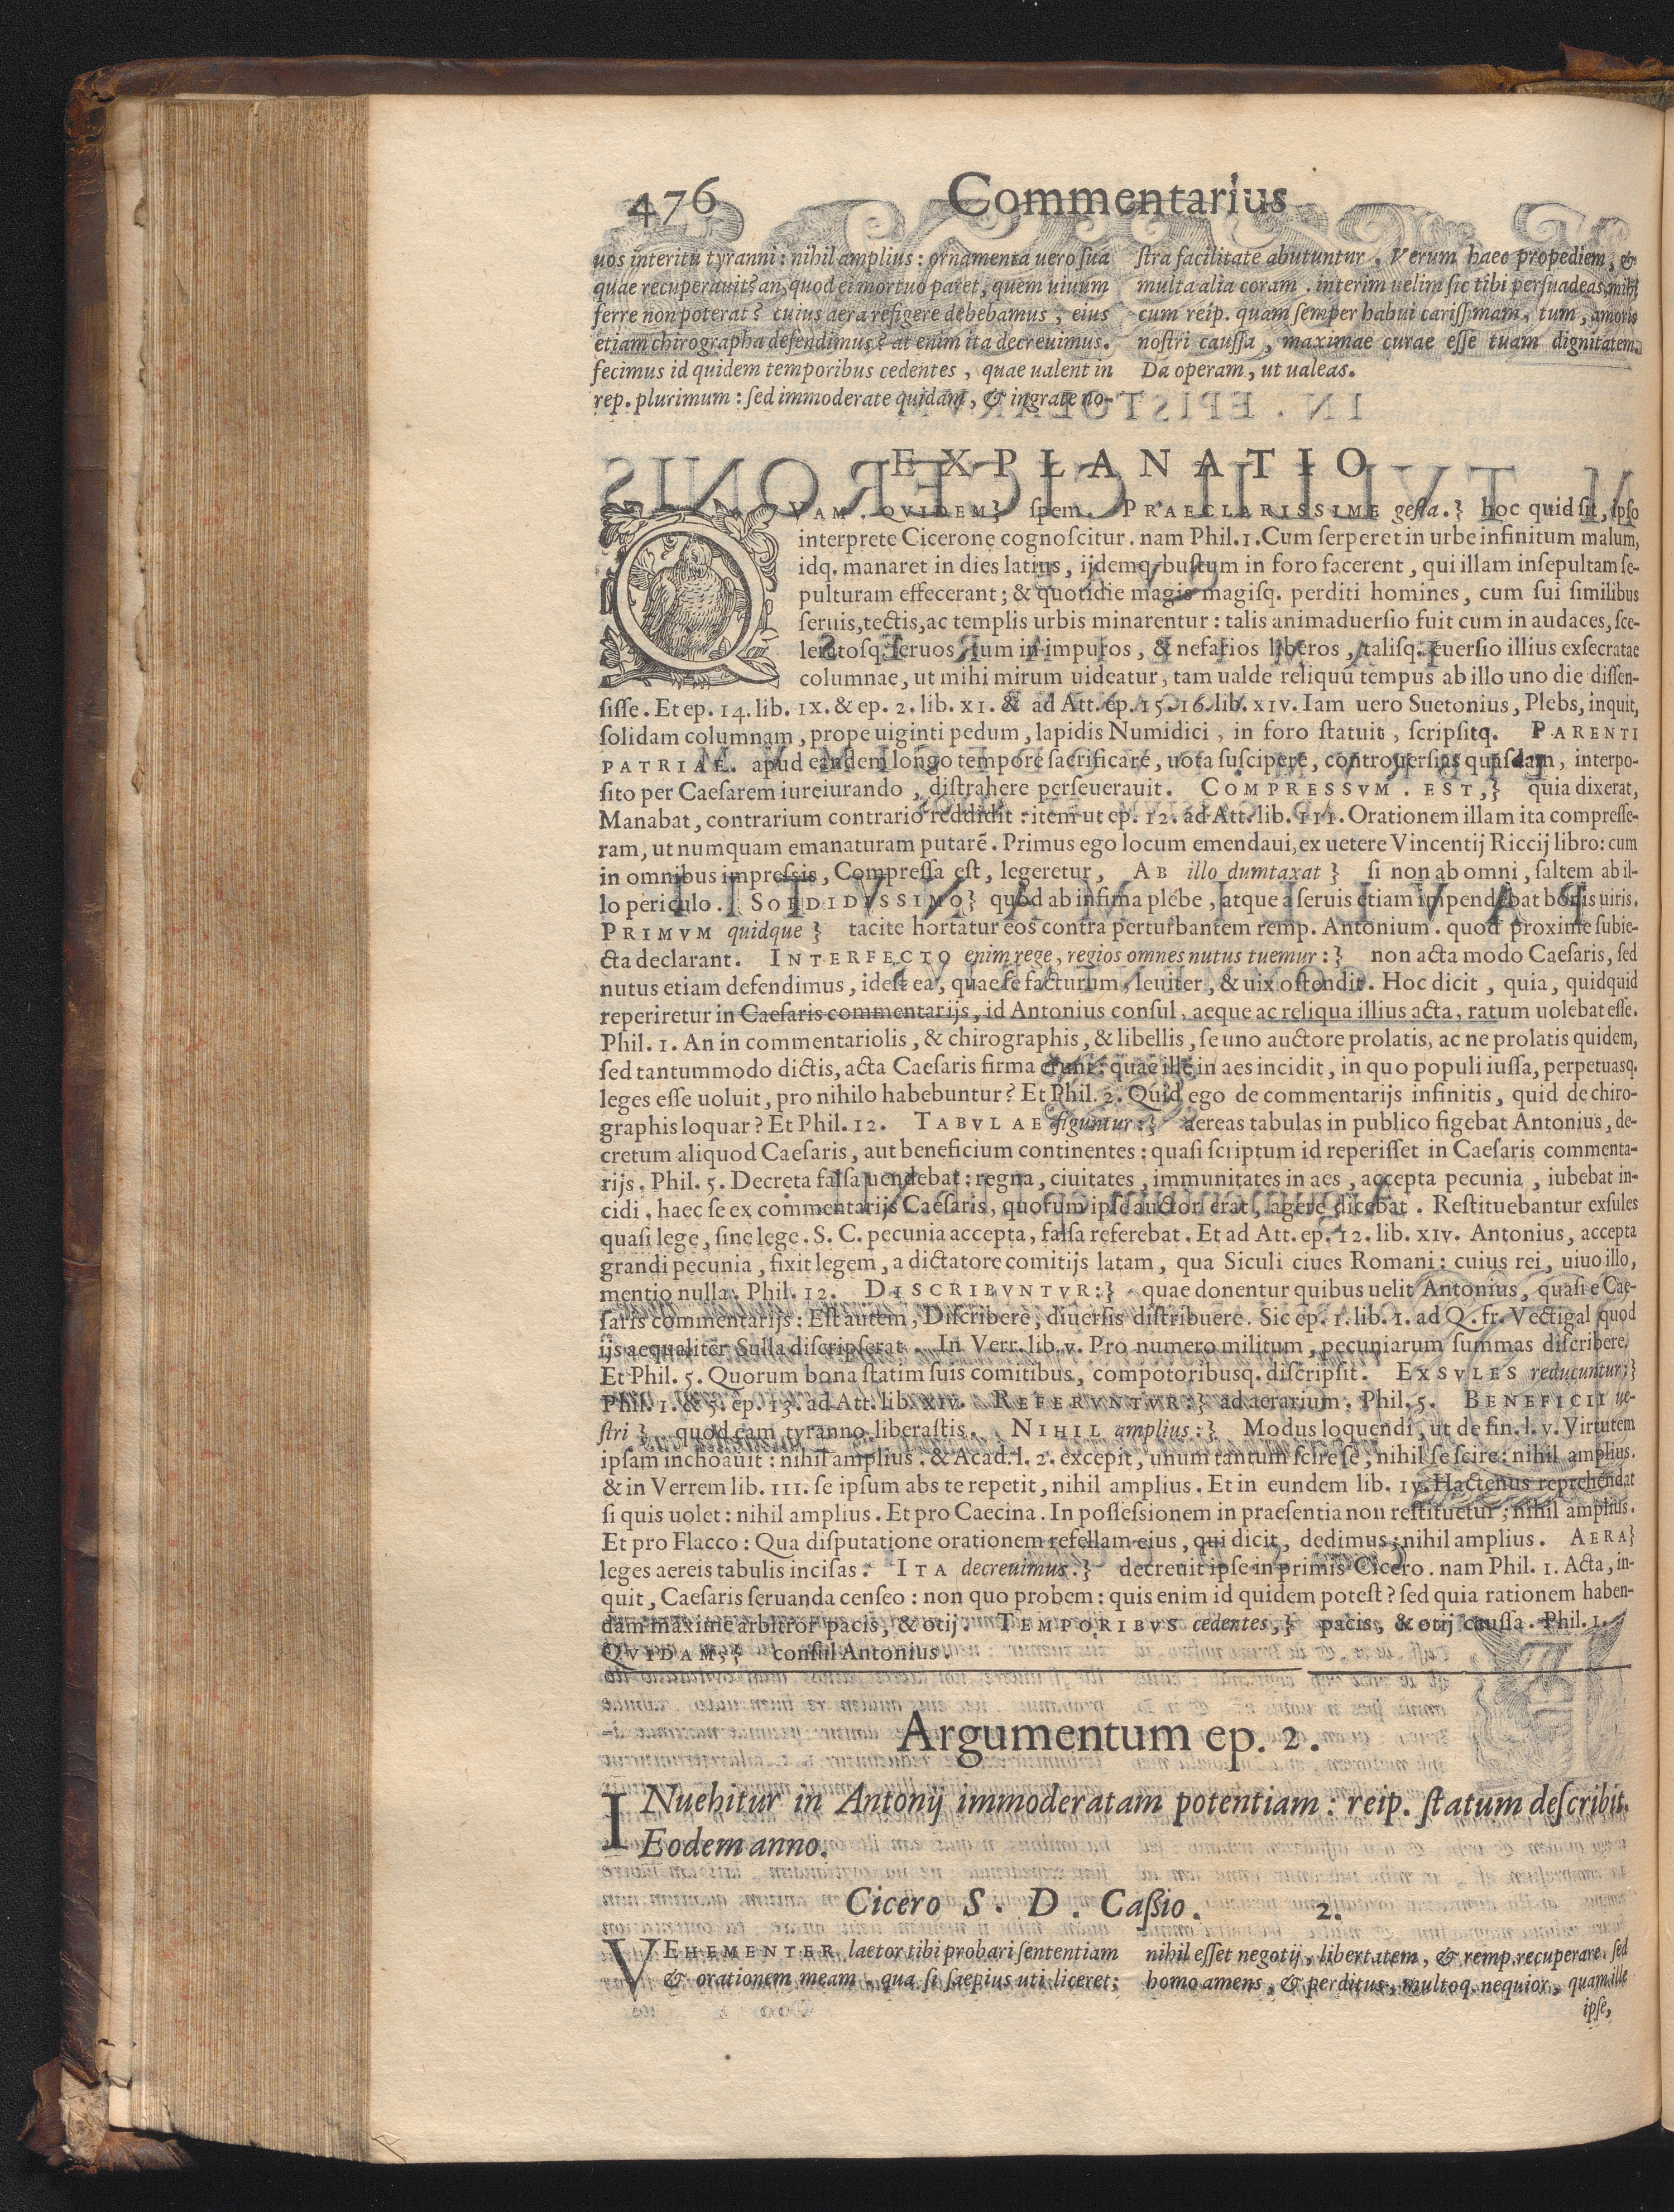 476 Commentarius
uos interitu tyranni: nihil amplius: ornamenta uero sua
quae recuperauit? an, quod ei mortuo paret, quem uiuum
ferre non poterat? cuius aera refigere debebamus, eius
etiam chirographa defendimus? at enim ita decreuimus.
fecimus id quidem temporibus cedentes, quae ualent in
rep. plurimum: sed immoderate quidam, & ingrate no-
ſtra facilitate abutuntur. Verum haec propediem, &
multa alia coram. interim uelim ſic tibi perſuadeas, mihi
cum reip. quam ſemper habui cariſſimam, tum, amoris
noſtri cauſſa, maximae curae eſſe tuam dignitatem.
Da operam, ut ualeas.
EXPLANATIO
QVAM. QVIDEM} ſpem. PRAECLARISSIME geſta.} hoc quid ſit, ipſo
interprete Cicerone cognoſcitur. nam Phil. 1. Cum ſerperet in urbe infinitum malum,
idq. manaret in dies latius, ijdemq. buſtum in foro facerent, qui illam inſepultam ſe-
pulturam effecerant; & quotidie magis magiſq. perditi homines, cum ſui ſimilibus
ſeruis, tectis, ac templis urbis minarentur: talis animaduerſio fuit cum in audaces, ſce-
leratoſq. ſeruos, tum in impuros, & nefarios liberos, taliſq. euerſio illius exſecratae
columnae, ut mihi mirum uideatur, tam ualde reliquū tempus ab illo uno die diſſen-
ſiſſe. Et ep. 14. lib. IX. & ep. 2. lib. XI. & ad Att. ep. 15. 16. lib. XIV. Iam uero Suetonius, Plebs, inquit,
ſolidam columnam, prope uiginti pedum, lapidis Numidici, in foro ſtatuit, ſcripſitq. PARENTI
PATRIAE. apud eandem longo tempore ſacrificare, uota ſuſcipere, controuerſias quaſdam, interpo-
ſito per Caeſarem iureiurando, diſtrahere perſeuerauit. COMPRESSVM. EST,} quia dixerat,
Manabat, contrarium contrario reddidit: item ut ep. 12. ad Att. lib. III. Orationem illam ita compreſſe-
ram, ut numquam emanaturam putarē. Primus ego locum emendaui, ex uetere Vincentij Riccij libro: cum
in omnibus impreſsis, Compreſſa eſt, legeretur, AB illo dumtaxat} ſi non ab omni, ſaltem ab il-
lo periculo. SORDIDISSIMO} quod ab infima plebe, atque a ſeruis etiam impendebat bonis uiris.
PRIMVM quidque} tacite hortatur eos contra perturbantem remp. Antonium. quod proxime ſubie-
cta declarant. INTERFECTO enim rege, regios omnes nutus tuemur:} non acta modo Caeſaris, ſed
nutus etiam defendimus, ideſt ea, quae ſe facturum, leuiter, & uix oſtendit. Hoc dicit, quia, quidquid
reperiretur in Caeſaris commentarijs, id Antonius conſul, aeque ac reliqua illius acta, ratum uolebat eſſe.
Phil. 1. An in commentariolis, & chirographis, & libellis, ſe uno auctore prolatis, ac ne prolatis quidem,
ſed tantummodo dictis, acta Caeſaris firma erunt: quae ille in aes incidit, in quo populi iuſſa, perpetuasq.
leges eſſe uoluit, pro nihilo habebuntur? Et Phil. 2. Quid ego de commentarijs infinitis, quid de chiro-
graphis loquar? Et Phil. 12. TABVLAE figuntur:} aereas tabulas in publico figebat Antonius, de-
cretum aliquod Caeſaris, aut beneficium continentes: quaſi ſcriptum id reperiſſet in Caeſaris commenta-
rijs. Phil. 5. Decreta falſa uendebat: regna, ciuitates, immunitates in aes, accepta pecunia, iubebat in-
cidi. haec ſe ex commentarijs Caeſaris, quorum ipſe auctor erat, agere dicebat. Reſtituebantur exſules
quaſi lege, ſine lege. S. C. pecunia accepta, falſa referebat. Et ad Att. ep. 12. lib. XIV. Antonius, accepta
grandi pecunia, fixit legem, a dictatore comitijs latam, qua Siculi ciues Romani: cuius rei, uiuo illo,
mentio nulla. Phil. 12. DISCRIBVNTVR:} quae donentur quibus uelit Antonius, quaſi e Cae-
ſaris commentarijs: Eſt autem, Diſcribere, diuerſis diſtribuere. Sic ep. 1. lib. 1. ad Q. fr. Vectigal quod
ijs aequaliter Sulla diſcripſerat. In Verr. lib. V. Pro numero militum, pecuniarum ſummas diſcribere.
Et Phil. 5. Quorum bona ſtatim ſuis comitibus, compotoribusq. diſcripſit. EXSVLES reducuntur;}
Phil. 1. & 5. ep. 13. ad Att. lib. XIV. REFERVNTVR:} ad aerarium. Phil. 5. BENEFICII ue-
ſtri} quod eam tyranno liberaſtis. NIHIL amplius:} Modus loquendi, ut de fin. l. v. Virtutem
ipſam inchoauit: nihil amplius. & Acad. l. 2. excepit, unum tantum ſcire ſe, nihil ſe ſcire: nihil amplius.
& in Verrem lib. III. ſe ipſum abs te repetit, nihil amplius. Et in eundem lib. IV. Hactenus reprehēdat
ſi quis uolet: nihil amplius. Et pro Caecina. In poſſeſsionem in praeſentia non reſtituetur; nihil amplius.
Et pro Flacco: Qua diſputatione orationem refellam eius, qui dicit, dedimus; nihil amplius. AERA}
leges aereis tabulis inciſas. ITA decreuimus.} decreuit ipſe in primis Cicero. nam Phil. 1. Acta, in-
quit, Caeſaris ſeruanda cenſeo: non quo probem: quis enim id quidem poteſt? ſed quia rationem haben-
dam maxime arbitror pacis, & otij. TEMPORIBVS cedentes,} pacis, & otij cauſſa. Phil. 1.
QVIDAM,} conſul Antonius.
Argumentum ep. 2.
INuehitur in Antonij immoderatam potentiam: reip. ſtatum deſcribit.
Eodem anno.
Cicero S. D. Caſsio. 2.
VEHEMENTER laetor tibi probari ſententiam
& orationem meam. qua ſi ſaepius uti liceret;
nihil eſſet negotij, libertatem, & remp. recuperare. ſed
homo amens, & perditus, multoq. nequior, quam ille
ipſe,